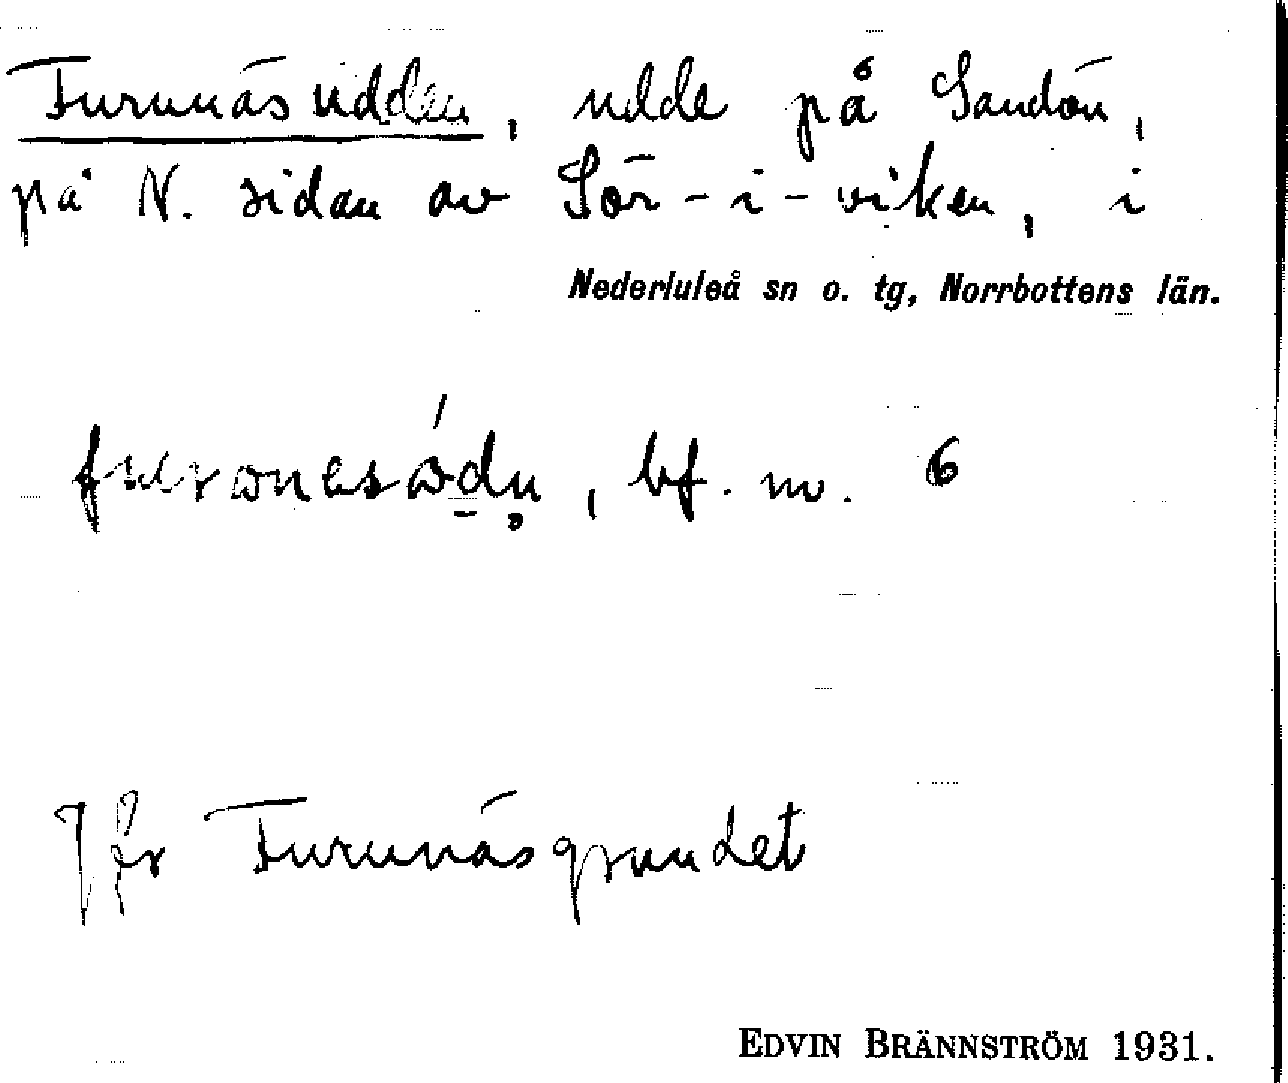 Furunäsudden, udde på Sandön,
på N. sidan av Sör-i-viken, i
Nederluleå sn o. tg, Norrbottens län.
bf. m. 6
Jfr Furunäsgrundet
EDVIN BRÄNNSTRÖM 1931.